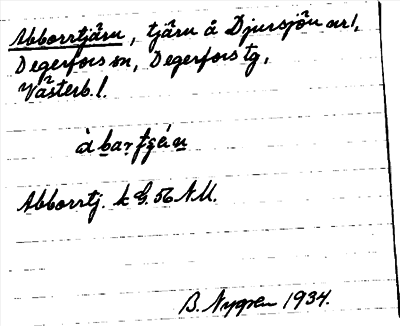 Abborrtjärn, tjärn å Djursjön arl,
Degerfors sn, Degerfors tg,
Västerb. l.
Abborrtj. k G. 56 N.U.
B. Nygren 1934.